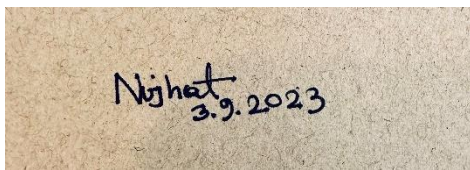 Nujhat
3.9.2023